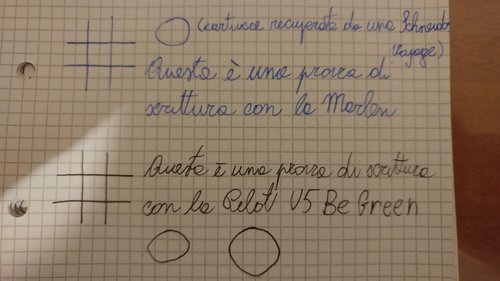 (cartucce recuperata da una Schneider
Voyage)
Questa è una prova di
scrittura con la Marlen
Questa è una prova di scrittura
con la Pilot V5 Be Green